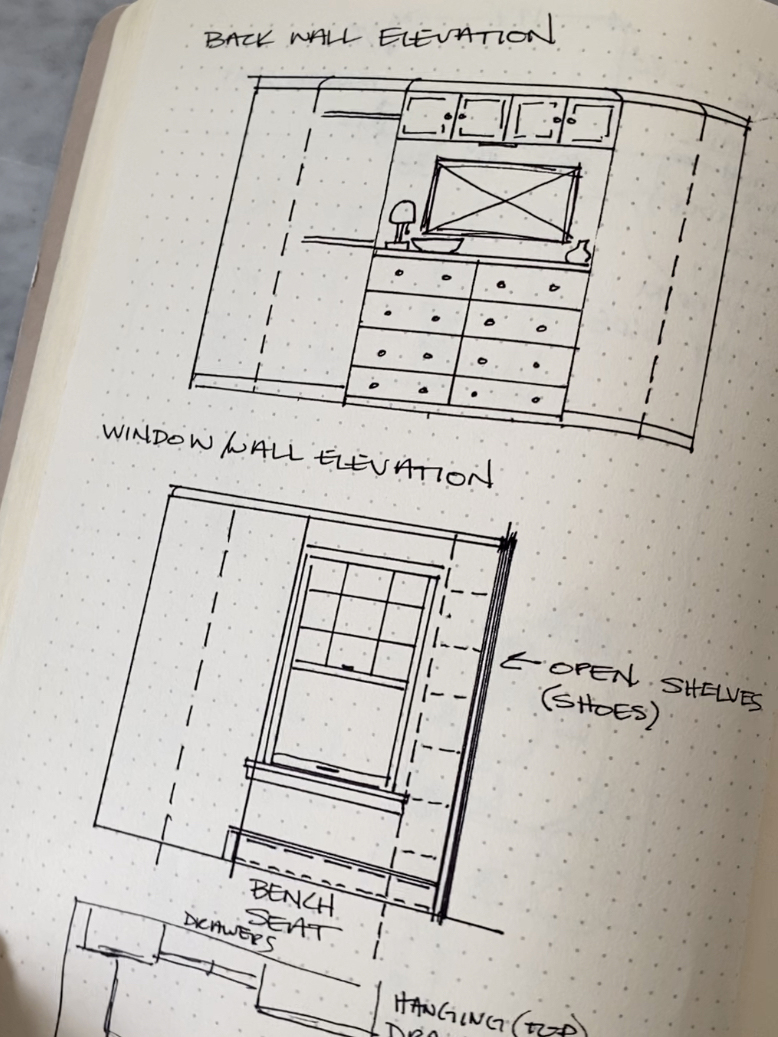 BACK WALL ELEVATION
WINDOW/WALL ELEVATION
← OPEN SHELVES
(SHOES)
BENCH
SEAT
DRAWERS
HANGING (TOP)